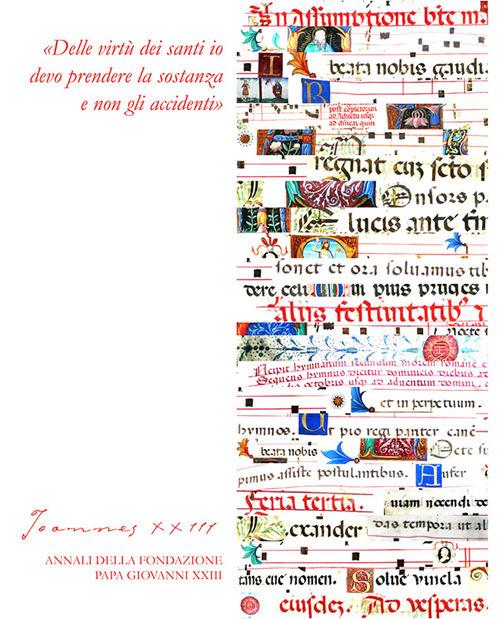 «Delle virtù dei santi io
devo prendere la sostanza
e non gli accidenti»
Joannes XXIII
ANNALI DELLA FONDAZIONE
PAPA GIOVANNI XXIII
In assumptione bte m.
beata nobis gaudi
post completorium
ad
regnat cuz scto s
ensors p
lucis ante
sonet et ora soluamus tib
dere celi in pius
alijs festiuitatib
nocte
Incipit hymnarium secundum morem romane
Sequens hymnus dicitur dominicis diebus
octobris usq ad aduentum domini
et in perpetuum.
hymnos. Ut pio regi panter cane
beata nobis
pimus assiste postulantibus. Aufer
Feria tertia.
exander das tempora ut al
eius nomen. Solue vincla
eiusdez. Ad vesperas